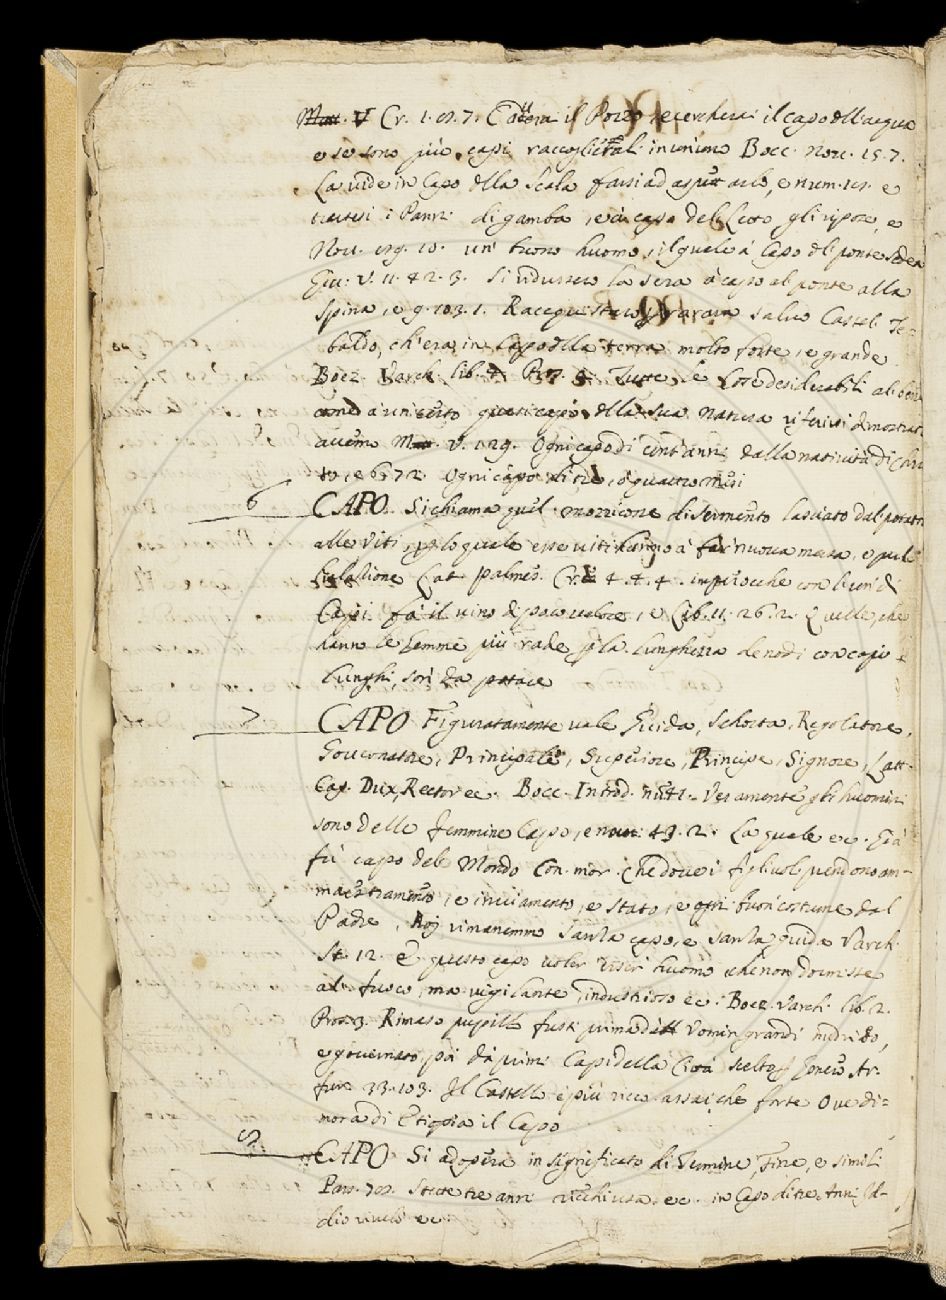 V Cr. 1. 7. il Pozzo, e cercherai il capo dell'acqua
e se sono più capi raccogli in un'uno Bocc. Nov. 15. 7.
La vide in Capo della Scala farsi ad e num. e
i Panni di gamba, e à capo del Letto gli ripose, e
Nov. 10. un' buono huomo, il quale à Capo del ponte sedea
Gio: V. 11. 42. 3. Si ridussero la sera à capo al ponte alla
Spina, e 9. 103. 1. Ferrara salvo Castel Te=
baldo, ch'era in Capo della terra molto forte, e grande
Boez. Varch. lib. Pros. Tutte le Cose desiderabili al
à un certo quasi capo della sua natura riferirsi dimostrato
avemo V. 129. Ogni capo di cent'anni dalla natività di
72. Ogni capo di tre, o quattro mesi
6 CAPO. Si chiama quel di Sermento lasciato dal potatore
alle Viti, per lo quale esse viti hanno à far nuova messa, e
Lat. palmes. Cr. 4. 4. 4. imperocche con
Capi fà il vino di poco valore, e Lib. 11. 26. 2. Quelle, che
hanno le Gemme più rade per la lunghezza de nodi con capi
lunghi, son da potare
7 CAPO Figuratamente vale Guida, Scorta, Regolatore,
Governatore, Principale, Superiore, Principe, Signore, Latt.
Cap. Dux, Rector ec. Bocc. Introd. Veramente gli huomini
sono delle femmine Capo, e nov: 49. 2. La quale ec. Già
fù capo del Mondo Con. mor. Che dove i figliuoli prendono am-
maestramento, e inviamento, e stato, e ogni buon' costume dal
Padre, Noj rimanemmo Sanza capo, e sanza guida Varch.
St. 12. E questo capo voler esser huomo che non dormisse
al fuoco, ma vigilante, industrioso ec. Boez. Varch. lib. 2.
Pros. 3. Rimaso pupillo fusti prima dalli Uomin grandi nudrito,
e governato, poi dà primi Capi della Città scelto Ar.
fur. 33. 103. Il Castello è più ricco assai, che forte Ove di=
mora di Etiopia il Capo
8 CAPO Si adopera in significato di Termine, Fine, e simili
Pass. Stette tre anni ec. in Capo di tre Anni Id-
dio ec.